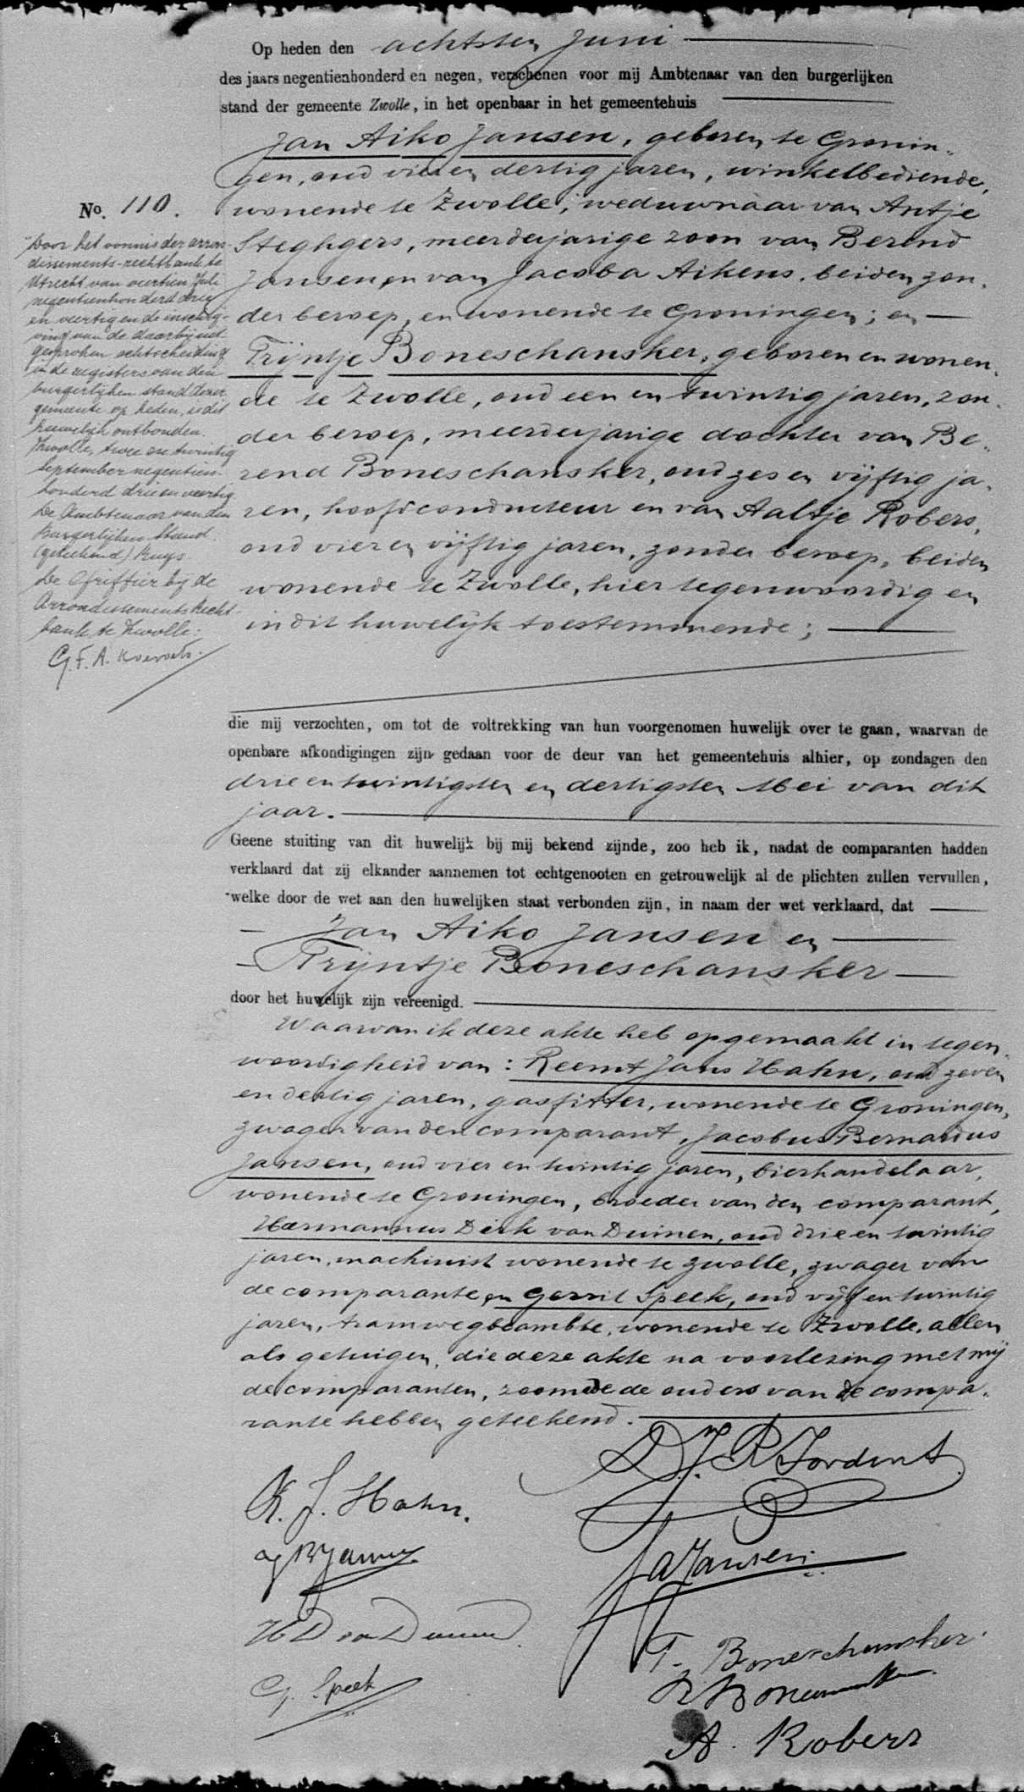 Op heden den achtsten Juni
des jaars negentienhonderd en negen, verschenen voor mij Ambtenaar van den burgerlijken
stand der gemeente Zwolle, in het openbaar in het gemeentehuis
Jan Aiko Jansen, geboren te Gronin-
gen, oud vier en dertig jaren, winkelbediende,
wonende te Zwolle, weduwnaar van Antje
Steghgers, meerderjarige zoon van Berend
Jansen en van Jacoba Aikens, beiden zon-
der beroep, en wonende te Groningen; en
Trijntje Boneschansker, geboren en wonen-
de te Zwolle, oud een en twintig jaren, zon-
der beroep, meerderjarige dochter van Be-
rend Boneschansker, oud zes en vijftig ja-
ren, hoofdconducteur en van Aaltje Robers,
oud vier en vijftig jaren, zonder beroep, beiden
wonende te Zwolle, hier tegenwoordig en
in dit huwelijk toestemmende;
No. 110.
Door het vonnis der arron-
dissements-rechtbank te
Utrecht van veertien Juli
negentienhonderd drie
en veertig en de inschrij-
ving van de daarbij uit-
gesproken echtscheiding
in de registers van den
burgerlijken stand dezer
gemeente op heden, is dit
huwelijk ontbonden.
Zwolle, twee en twintig
September negentien-
honderd drie en veertig
De Ambtenaar van den
Burgerlijken Stand.
(geteekend)
De Griffier bij de
Arrondissements Recht-
bank te Zwolle:
G. F. A.
die mij verzochten, om tot de voltrekking van hun voorgenomen huwelijk over te gaan, waarvan de
openbare afkondigingen zijn gedaan voor de deur van het gemeentehuis alhier, op zondagen den
drie en twintigsten en dertigsten Mei van dit
jaar.
Geene stuiting van dit huwelijk bij mij bekend zijnde, zoo heb ik, nadat de comparanten hadden
verklaard dat zij elkander aannemen tot echtgenooten en getrouwelijk al de plichten zullen vervullen,
welke door de wet aan den huwelijken staat verbonden zijn, in naam der wet verklaard, dat
Jan Aiko Jansen en
Trijntje Boneschansker
door het huwelijk zijn vereenigd.
Waarvan ik deze akte heb opgemaakt in tegen-
woordigheid van: Reemt Jans Hahn, oud zeven
en dertig jaren, gasfitter, wonende te Groningen,
zwager van den comparant, Jacobus Bernardus
Jansen, oud vier en twintig jaren, bierhandelaar,
wonende te Groningen, broeder van den comparant,
Harmannus Derk van Duinen, oud drie en twintig
jaren, machinist wonende te Zwolle, zwager van
de comparante en Gerrit Speek, oud vijf en twintig
jaren, tramwegbeambte, wonende te Zwolle, allen
als getuigen, die deze akte na voorlezing met mij
de comparanten, zoomede de ouders van de compa-
rante hebben geteekend.
D. J. R. Jordens
R. J. Hahn.
J B Jansen
J A Jansen
H D van Duinen
T. Boneschansker
G. Speek
B Boneschansker
A. Robers